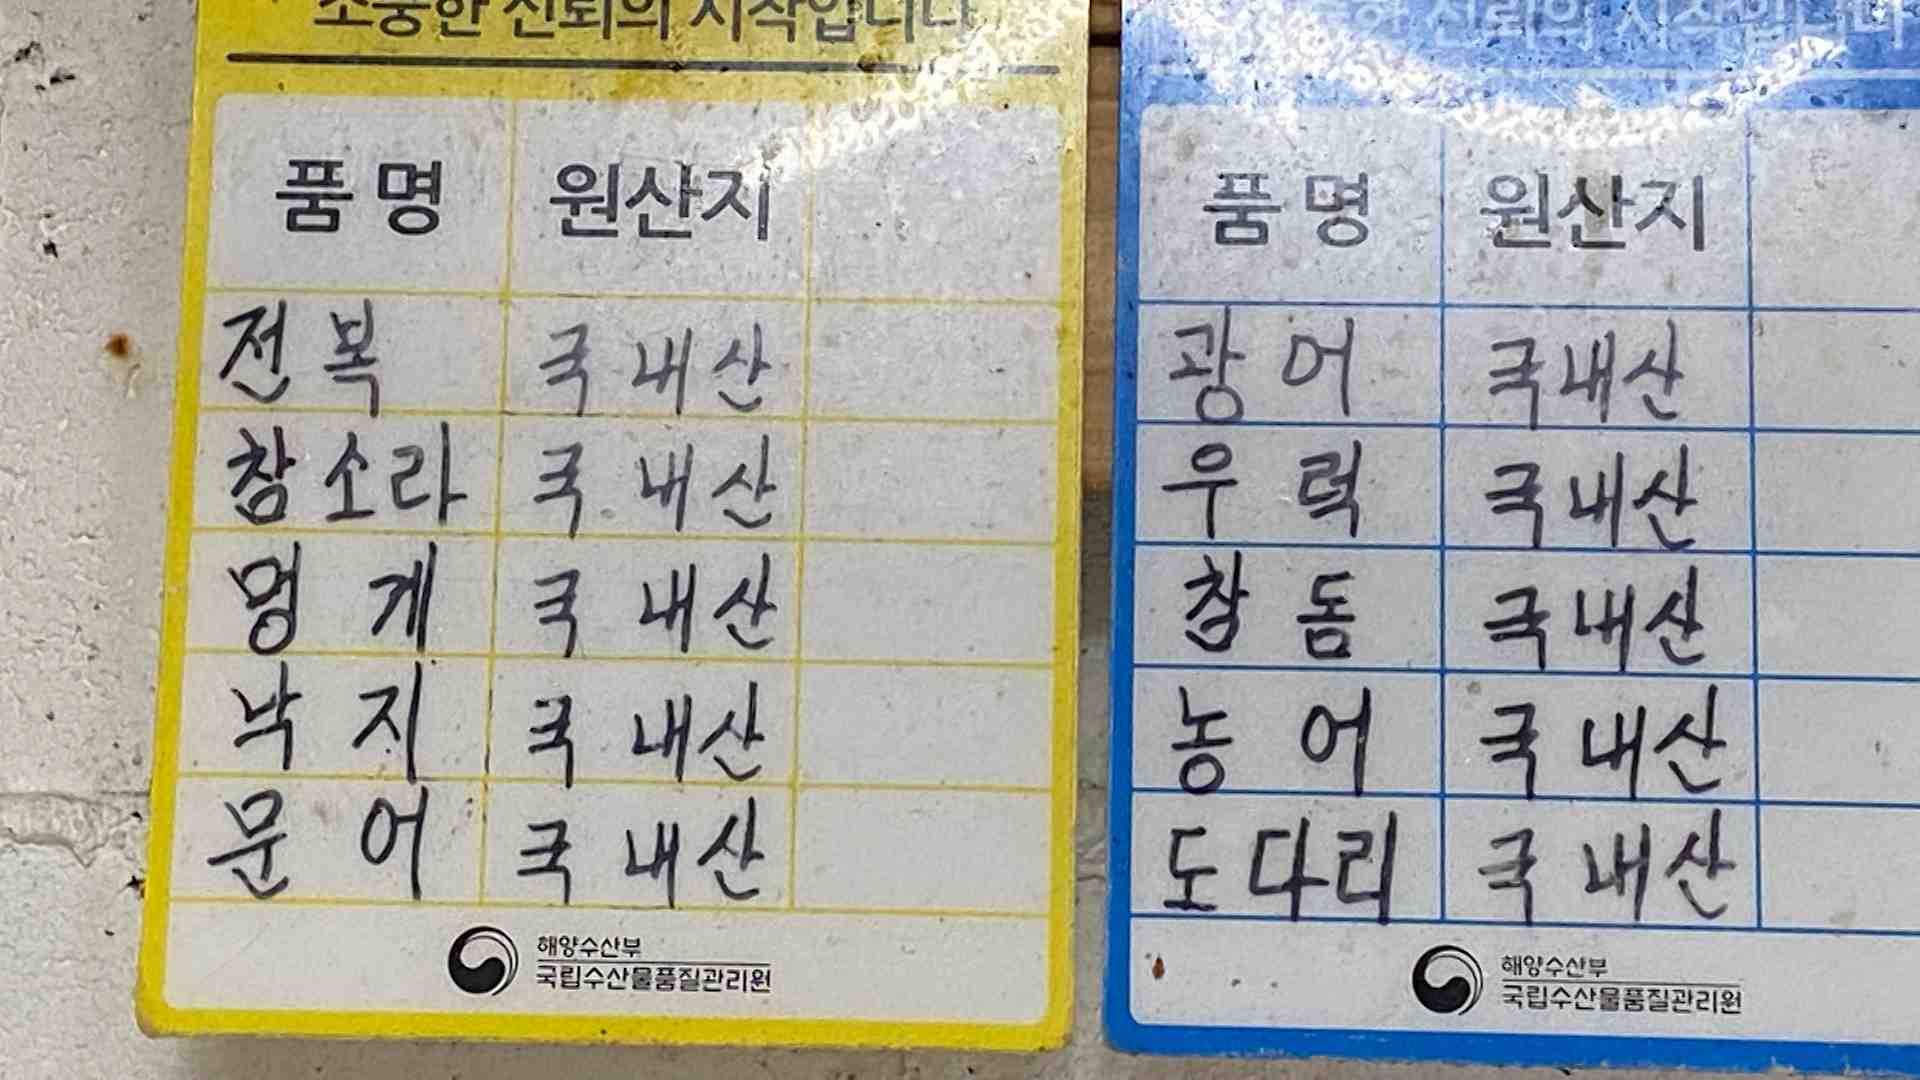 소중한 신뢰의 시작입니다
품명 원산지
전복 국내산
참소라 국내산
멍게 국내산
낙지 국내산
문어 국내산
해양수산부
국립수산물품질관리원
신뢰의 시작입니다
품명 원산지
광어 국내산
우럭 국내산
참돔 국내산
농어 국내산
도다리 국내산
해양수산부
국립수산물품질관리원